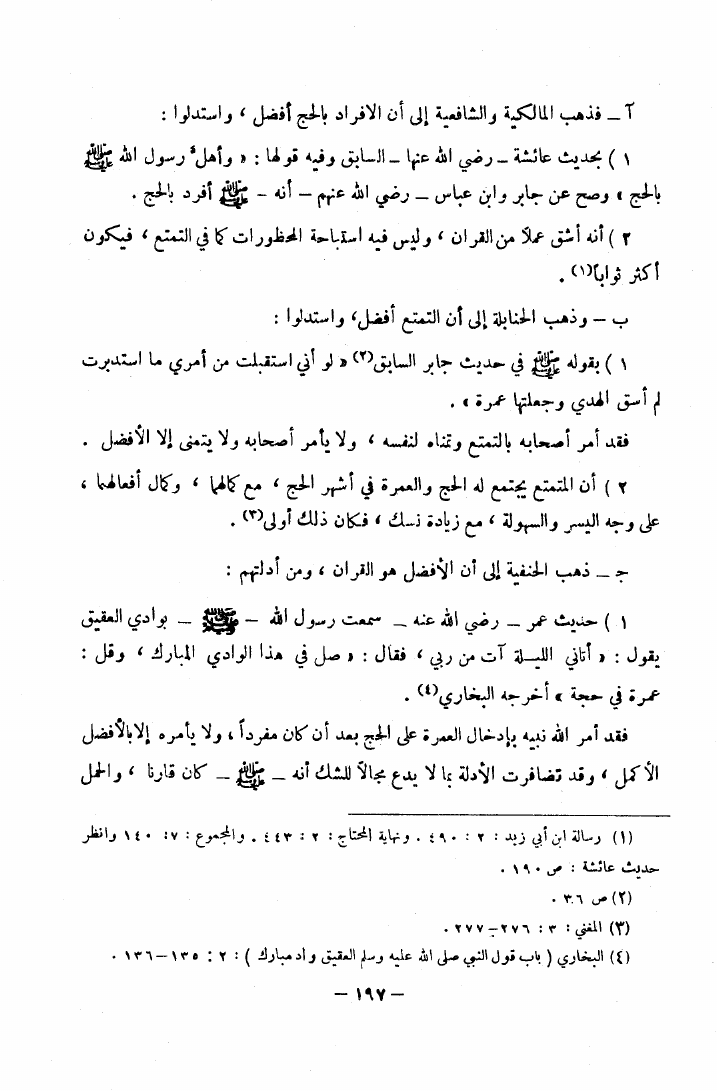 آ ــ فذهب المالكية والشافعية إلى أن الافراد بالحج أفضل ، واستدلوا :
١ ) بحديث عائشة ــ رضي الله عنها ــ السابق وفيه قولها : « وأهلَّ رسول الله ﷺ
بالحج » وصح عن جابر وابن عباس ــ رضي الله عنهم ــ أنه ــ ﷺ أفرد بالحج .
٢ ) أنه أشق عملاً من القران ، وليس فيه استباحة المحظورات كما في التمتع ، فيكون
أكثر ثواباً(١) .
ب ــ وذهب الحنابلة إلى أن التمتع أفضل، واستدلوا :
١ ) بقوله ﷺ في حديث جابر السابق(٢) « لو أني استقبلت من أمري ما استدبرت
لم أسق الهدي وجعلتها عمرة » .
فقد أمر أصحابه بالتمتع وتمناه لنفسه ، ولا يأمر أصحابه ولا يتمنى إلا الأفضل .
٢ ) أن المتمتع يجتمع له الحج والعمرة في أشهر الحج ، مع كمالهما ، وكمال أفعالهما ،
على وجه اليسر والسهولة ، مع زيادة نسك ، فكان ذلك أولى(٣) .
جـ ــ ذهب الحنفية إلى أن الأفضل هو القران ، ومن أدلتهم :
١ ) حديث عمر ــ رضي الله عنه ــ سمعت رسول الله ــ ﷺ ــ بوادي العقيق
يقول : « أتاني الليلة آت من ربي ، فقال : « صل في هذا الوادي المبارك ، وقل :
عمرة في حجة » أخرجه البخاري(٤) .
فقد أمر الله نبيه بإدخال العمرة على الحج بعد أن كان مفرداً ، ولا يأمره إلا بالأفضل
الأكمل ، وقد تضافرت الأدلة بما لا يدع مجالاً للشك أنه ــ ﷺ ــ كان قارنا ، والحمل
(١) رسالة ابن أبي زيد : ٢ : ٤٩٠ . ونهاية المحتاج : ٢ : ٤٤٣ . والمجموع : ٧: ١٤٠ وانظر
حديث عائشة : ص ١٩٠ .
(٢) ص ٣٦ .
(٣) المغني : ٣ : ٢٧٦ــ٢٧٧ .
(٤) البخاري ( باب قول النبي صلى الله عليه وسلم العقيق واد مبارك ) : ٢ : ١٣٥ــ١٣٦ .
ــ ١٩٧ ــ